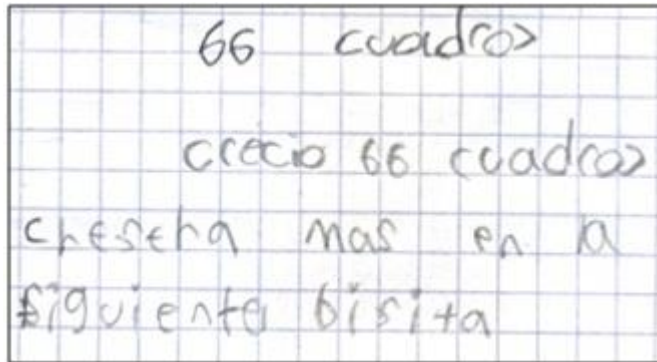 66 cuadros
crecio 66 cuadros
cresera mas en la
siguiente bisita